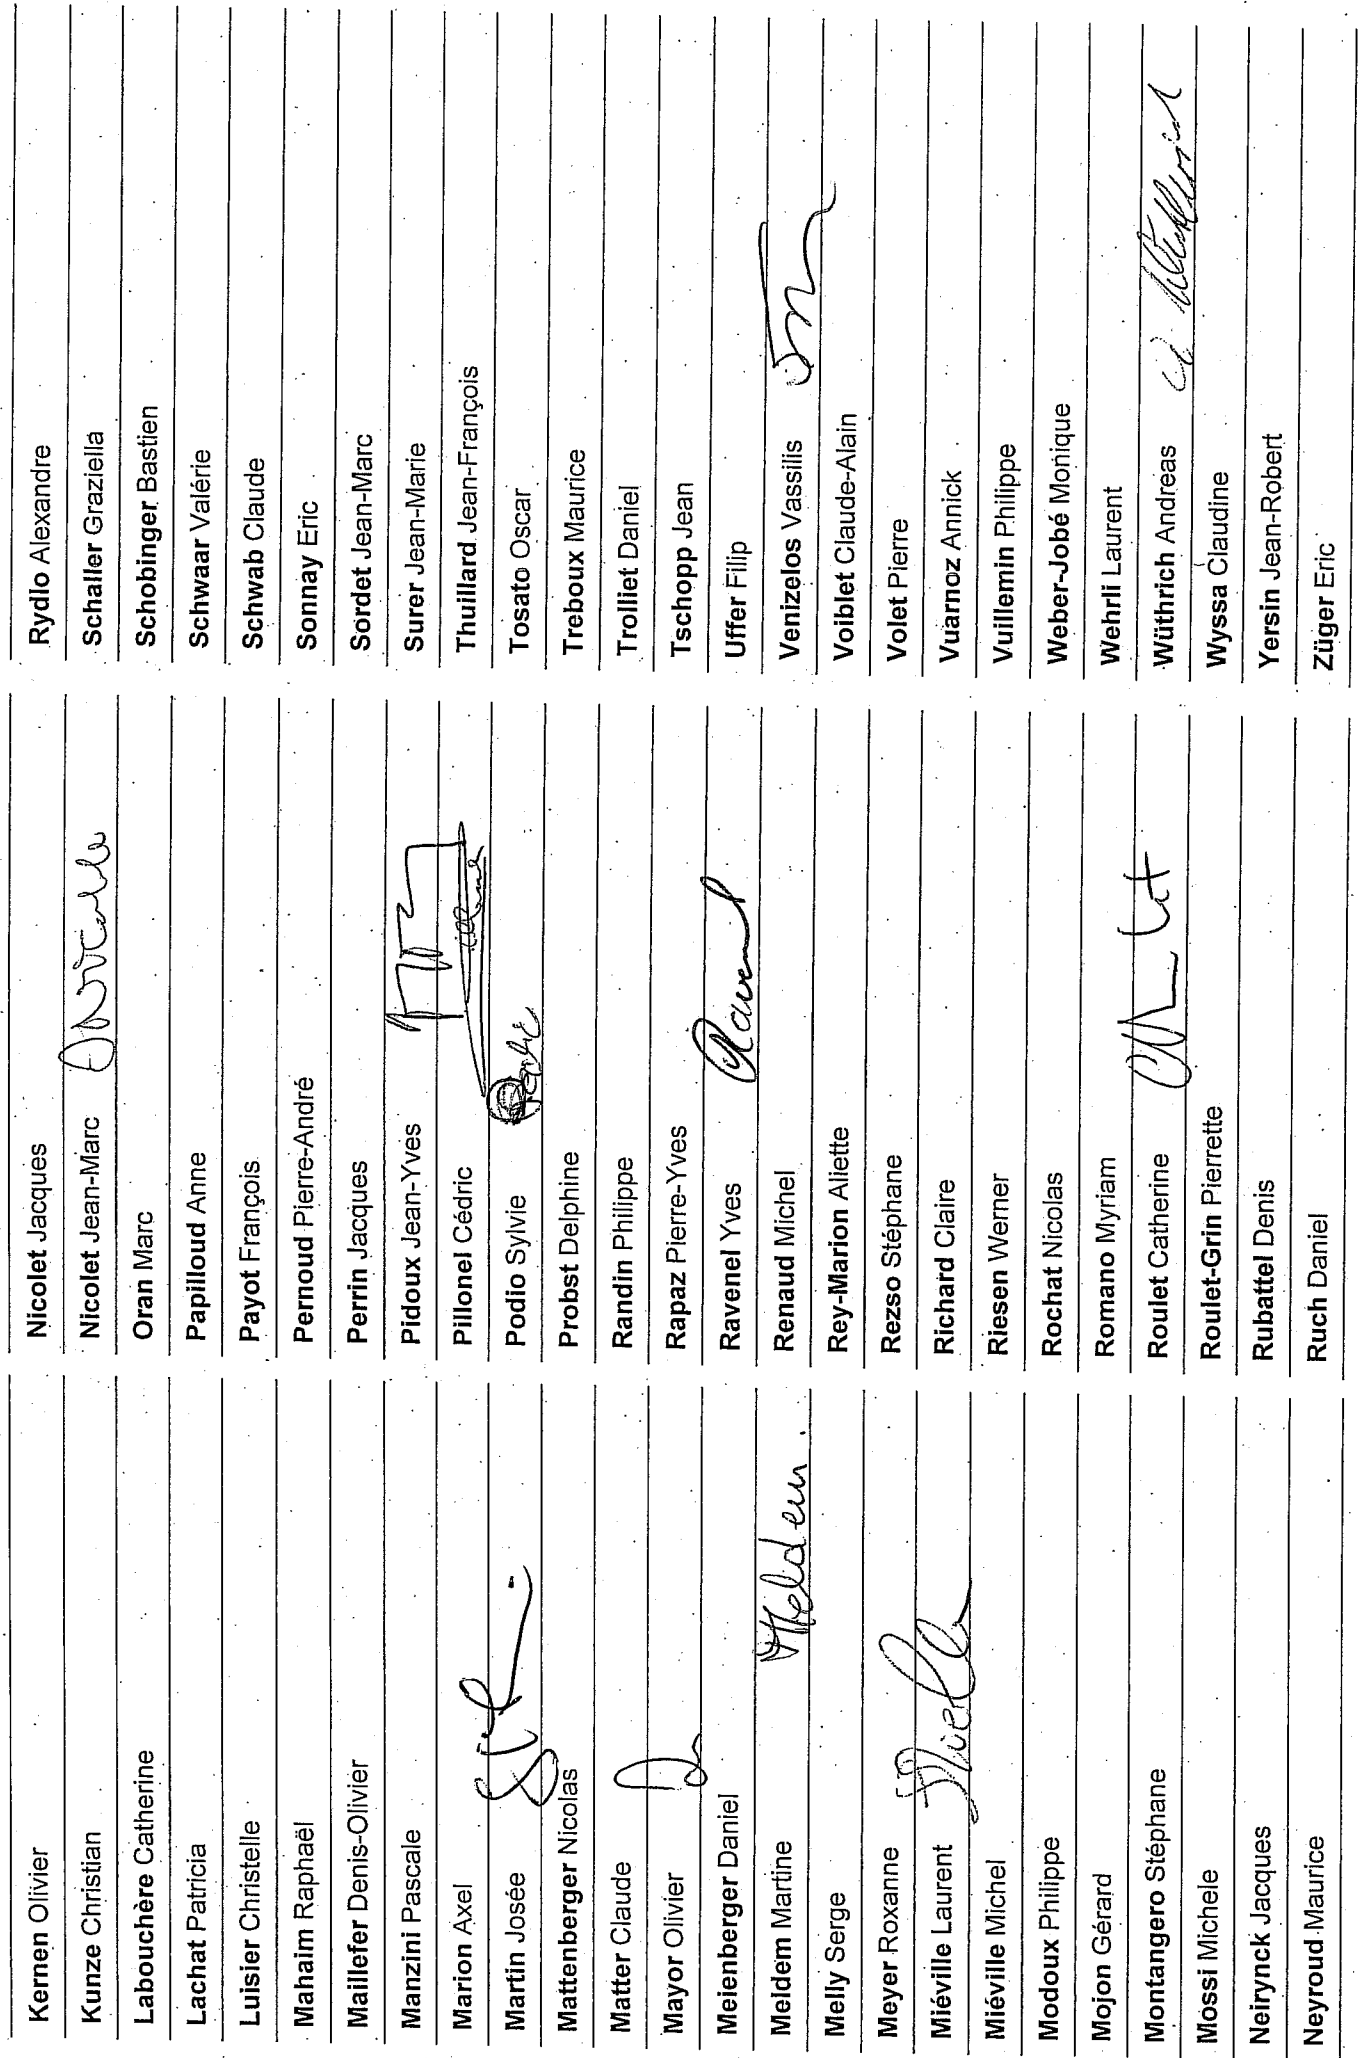 Kernen Olivier
Kunze Christian
Labouchère Catherine
Lachat Patricia
Luisier Christelle
Mahaim Raphaël
Maillefer Denis-Olivier
Manzini Pascale
Marion Axel
Martin Josée
Mattenberger Nicolas
Matter Claude
Mayor Olivier
Meienberger Daniel
Meldem Martine Meldem
Melly Serge
Meyer Roxanne
Miéville Laurent
Miéville Michel
Modoux Philippe
Mojon Gérard
Montangero Stéphane
Mossi Michele
Neirynck Jacques
Neyroud Maurice
Nicolet Jacques
Nicolet Jean-Marc
Oran Marc
Papilloud Anne
Payot François
Pernoud Pierre-André
Perrin Jacques
Pidoux Jean-Yves
Pillonel Cédric
Podio Sylvie
Probst Delphine
Randin Philippe
Rapaz Pierre-Yves
Ravenel Yves Ravenel
Renaud Michel
Rey-Marion Aliette
Rezso Stéphane
Richard Claire
Riesen Werner
Rochat Nicolas
Romano Myriam
Roulet Catherine
Roulet-Grin Pierrette
Rubattel Denis
Ruch Daniel
Rydlo Alexandre
Schaller Graziella
Schobinger Bastien
Schwaar Valérie
Schwab Claude
Sonnay Eric
Sordet Jean-Marc
Surer Jean-Marie
Thuillard Jean-François
Tosato Oscar
Treboux Maurice
Trolliet Daniel
Tschopp Jean
Uffer Filip
Venizelos Vassilis
Voiblet Claude-Alain
Volet Pierre
Vuarnoz Annick
Vuillemin Philippe
Weber-Jobé Monique
Wehrli Laurent
Wüthrich Andreas
Wyssa Claudine
Yersin Jean-Robert
Züger Eric